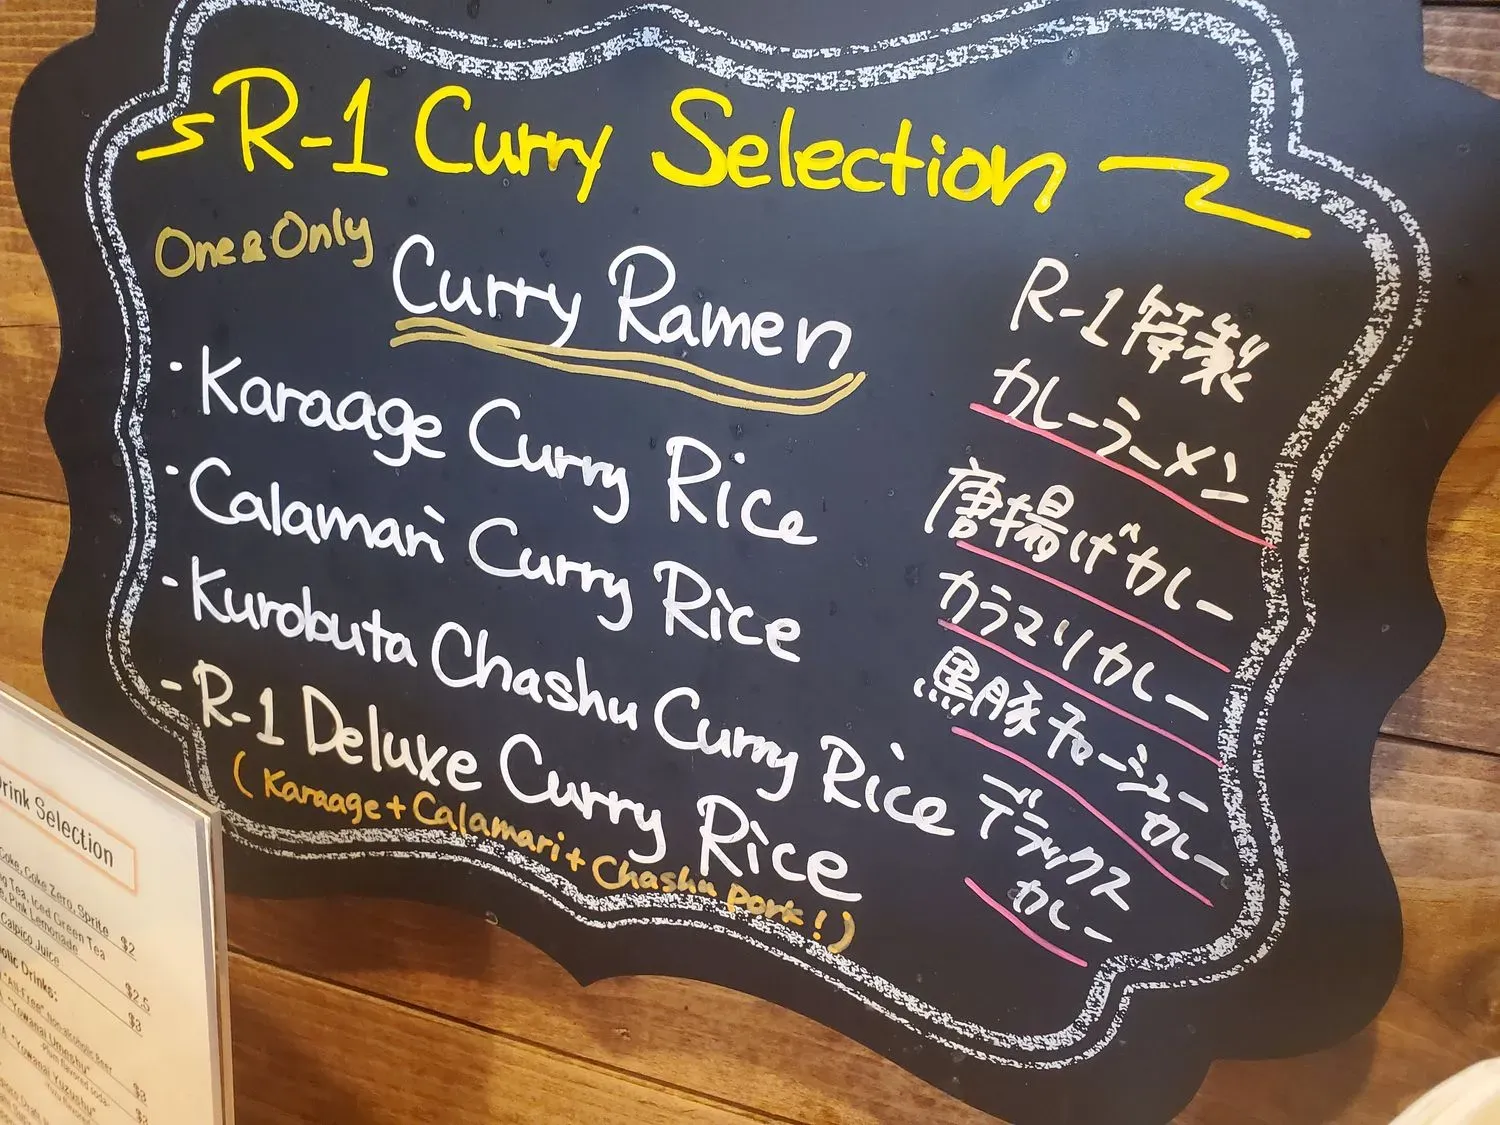 R-1 Curry Selection
One & Only
Curry Ramen
R-1 特製
カレーラーメン
・Karaage Curry Rice
唐揚げカレー
・Calamari Curry Rice
カラマリカレー
- Kurobuta Chashu Curry Rice
黒豚チャーシュー
カレー
- R-1 Deluxe Curry Rice
(Karaage + Calamari + Chashu pork!)
デラックス
カレー
rink Selection
Coke, Coke Zero, Sprite $2
Tea, Iced Green Tea
Pink Lemonade
Calpico Juice $2.5
$3
Drinks:
"All-Free" Non-alcoholic Beer
"Yowanai Umeshu" $3
Plum flavored soda
"Yowanai Yuzushu" $3